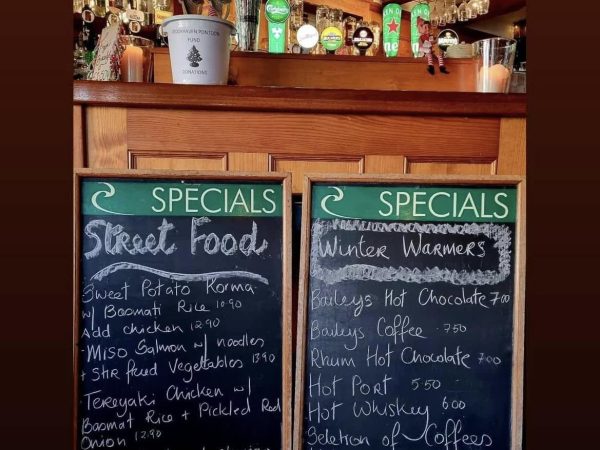 FUND
DONATIONS
SPECIALS
Street Food
Sweet Potato Korma
w/ Basmati Rice 10.90
Add chicken 12.90
· Miso Salmon w/ noodles
+ Stir fried Vegetables 13.90
· Tereyaki Chicken w/
Basmat Rice + Pickled Red
Onion 12.90
SPECIALS
Winter Warmers
Baileys Hot Chocolate 7.00
Baileys Coffee · 7.50
Rhum Hot Chocolate 7.00
Hot Port 5.50
Hot Whiskey 6.00
Seletion of Coffees